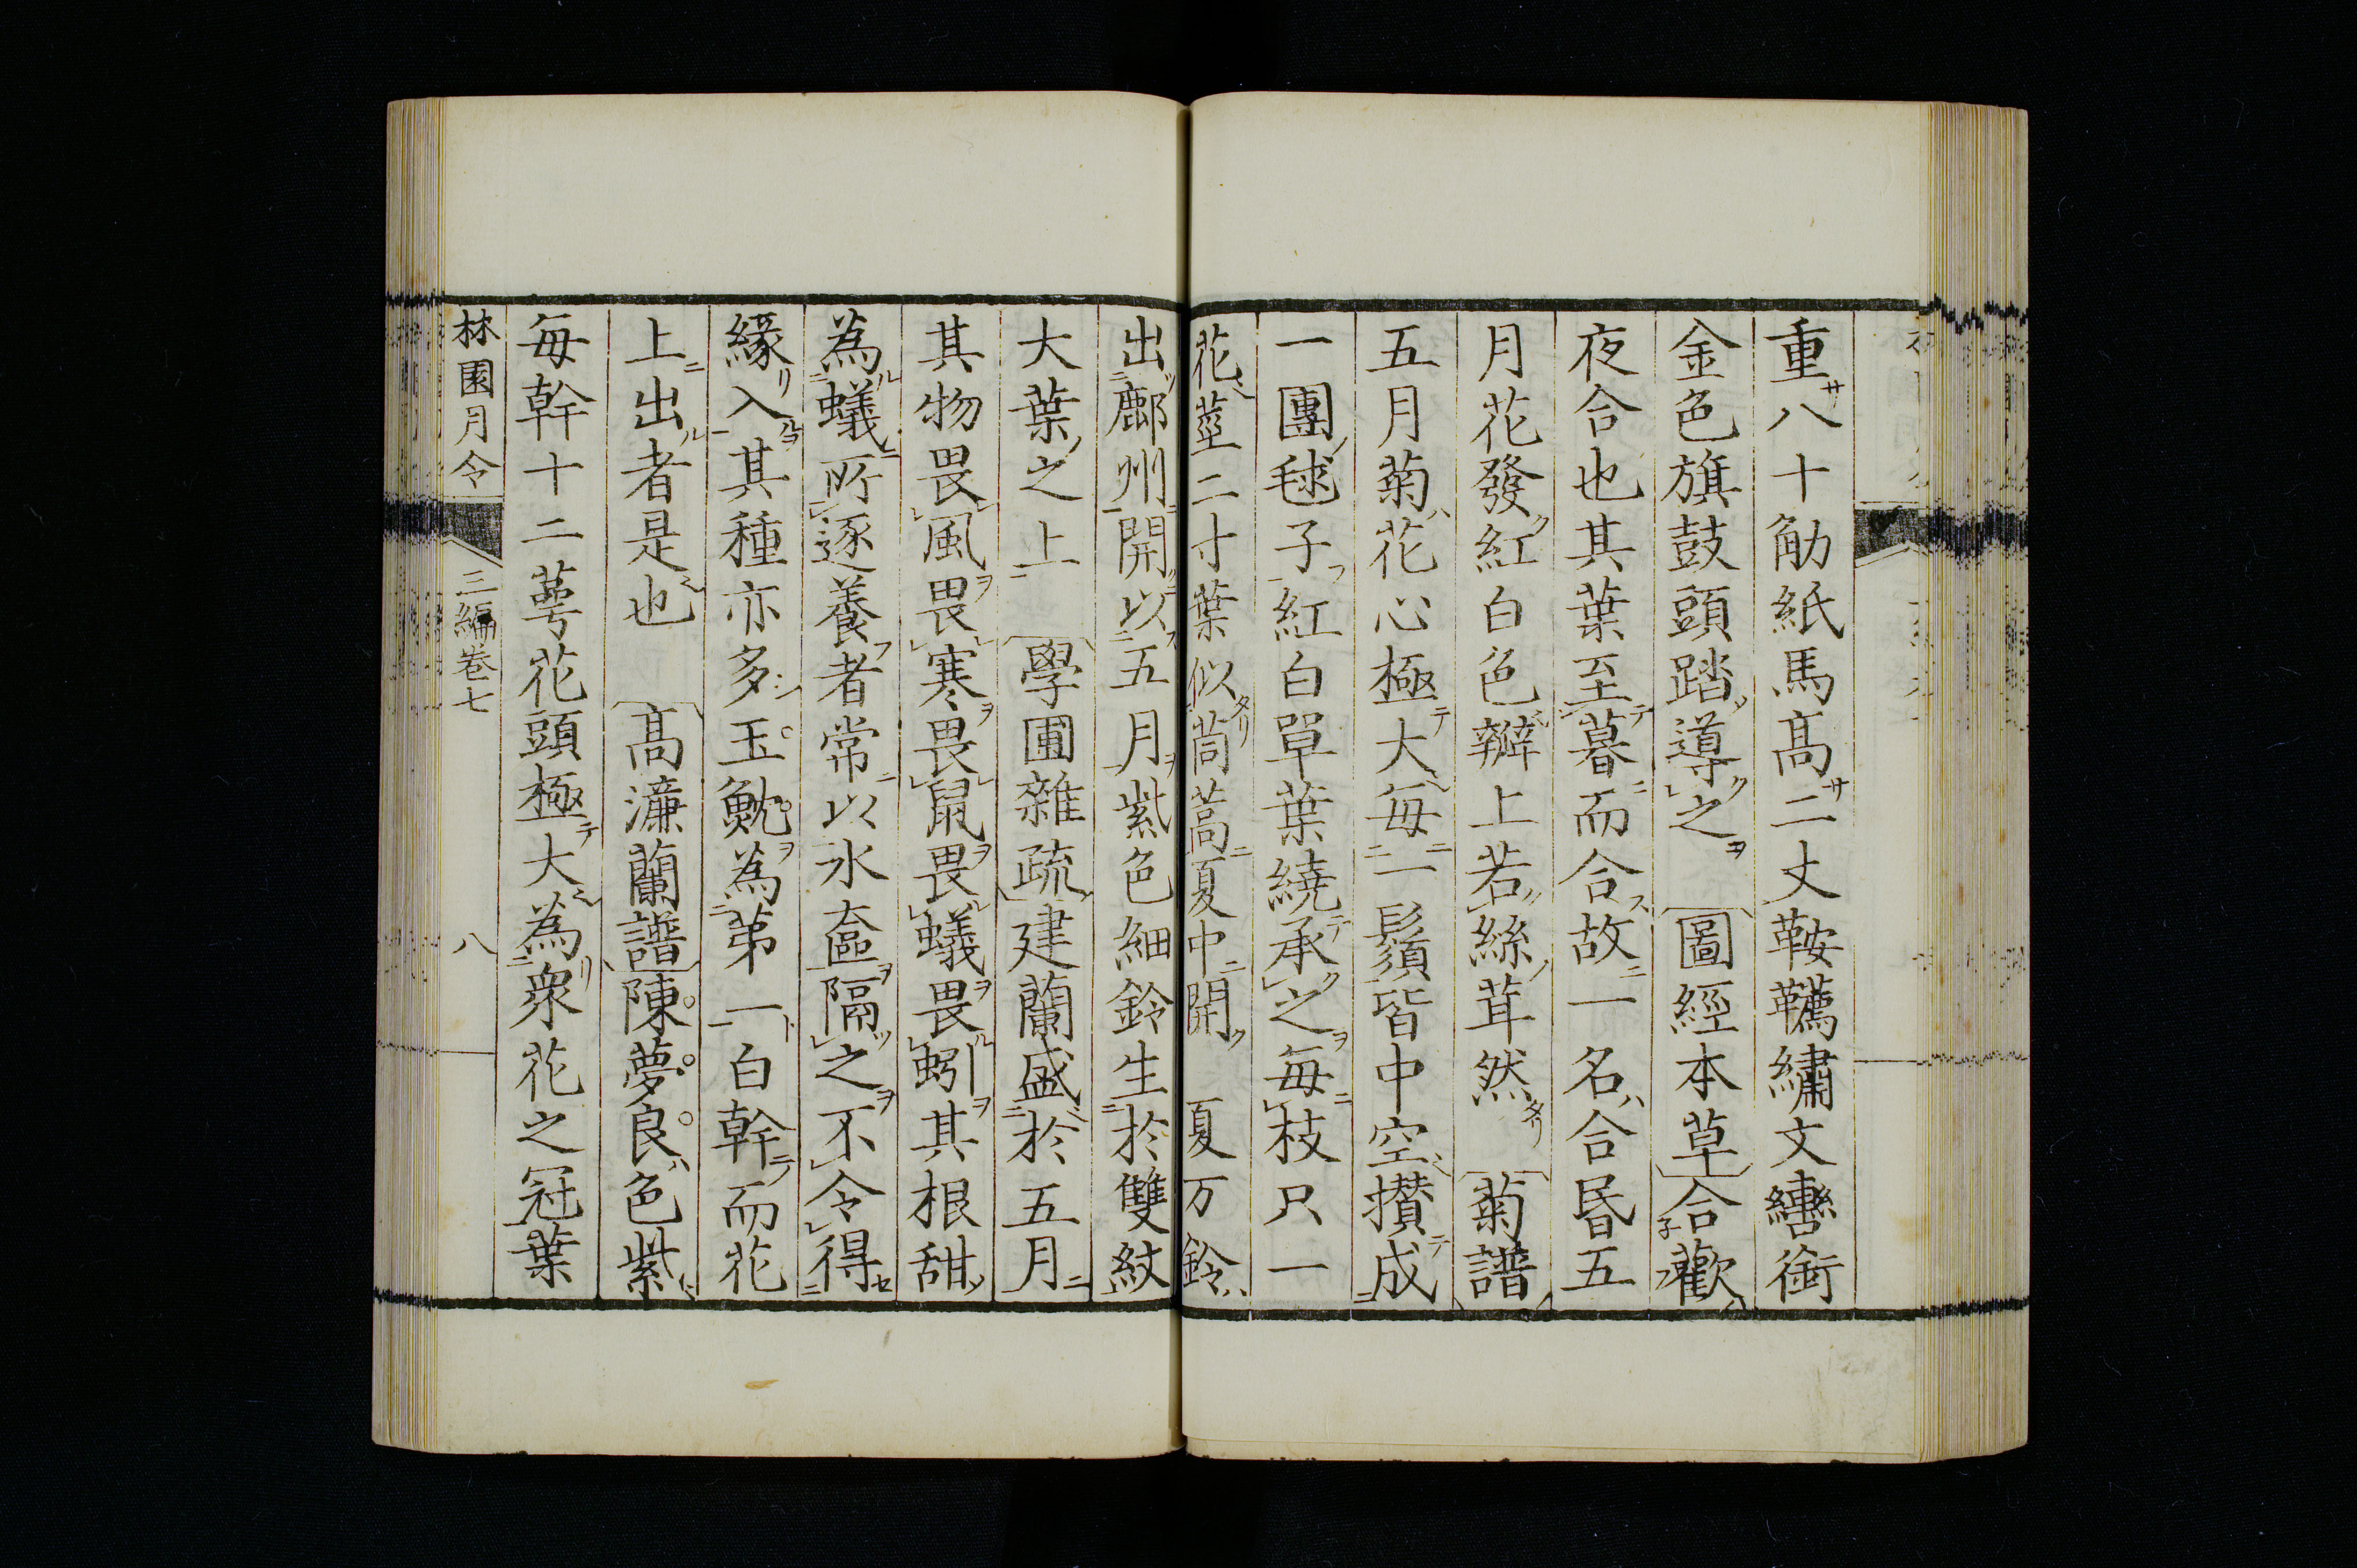 重八十觔紙馬髙二丈鞍韉繡文轡銜
金色旗鼓頭踏導之　〔圖經本草〕合歡
夜合也其葉至暮而合故一名合昏五
月花發紅白色瓣上若絲茸然　〔菊譜〕
五月菊花心極大毎一鬚皆中空攅成
一團毬子紅白單葉繞承之毎枝只一
花莖二寸葉似茼蒿夏中開　夏万鈴
出鄜州開以五月紫色細鈴生於雙紋
大葉之上　〔學圃雜疏〕建蘭盛於五月
其物畏風畏寒畏鼠畏蟻畏蚓其根甜
為蟻所逐養者常以水奩隔之不令得
縁入其種亦多玉魫為第一白幹而花
上出者是也　〔髙濂蘭譜〕陳夢良色紫
毎幹十二萼花頭極大為衆花之冠葉
林園月令　三編巻七　八